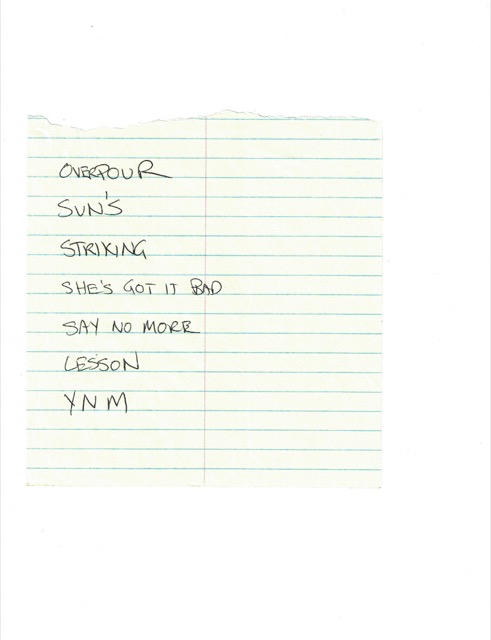 OVERPOUR
SUN'S
STRIKING
SHE'S GOT IT BAD
SAY NO MORE
LESSON
YNM